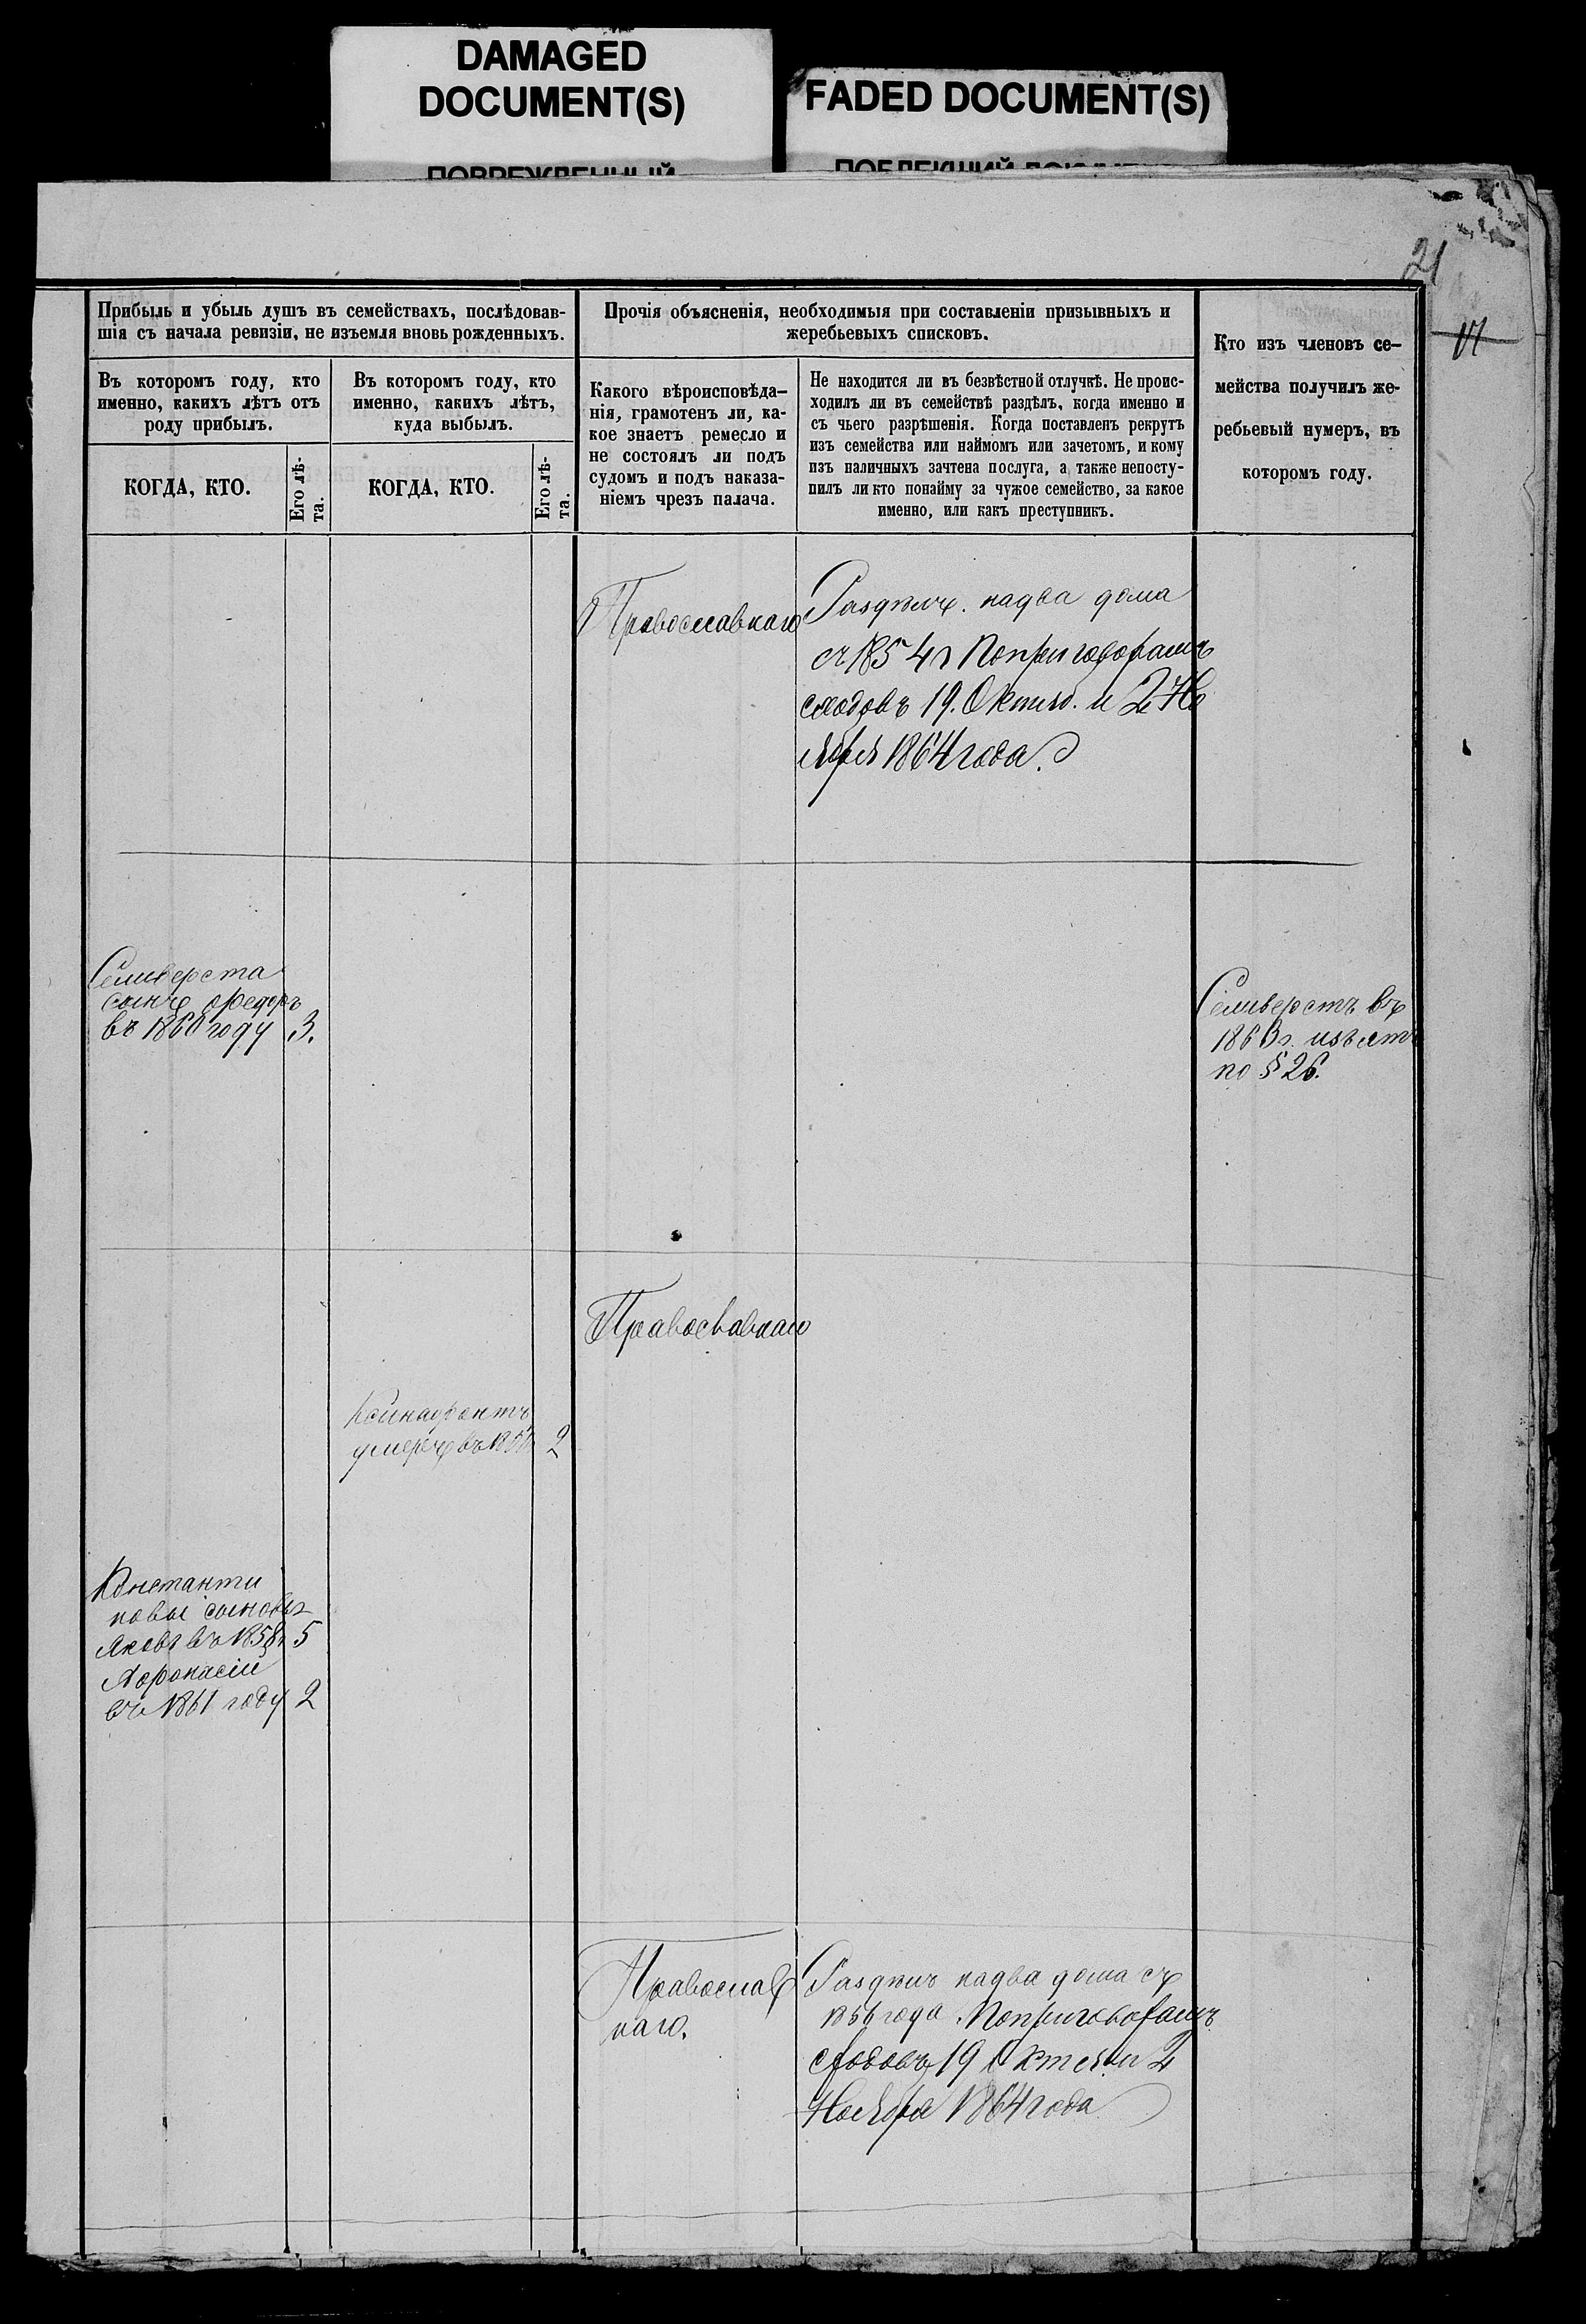 DAMAGED
DOCUMENT(S)
FADED DOCUMENT(S)
21
Прибыль и убыль душъ въ семействахъ, послѣдовав-
шія съ начала ревизіи, не изъемля вновь рожденныхъ.
Въ которомъ году, кто
именно, какихъ лѣтъ отъ
роду прибылъ.
КОГДА, КТО.
Его лѣ-
та.
Въ которомъ году, кто
именно, какихъ лѣтъ,
куда выбылъ.
КОГДА, КТО.
Его лѣ-
та.
Прочія объясненія, необходимыя при составленіи призывныхъ и
жеребьевыхъ списковъ.
Какого вѣроисповѣда-
нія, грамотенъ ли, ка-
кое знаетъ ремесло и
не состоялъ ли подъ
судомъ и подъ наказа-
ніемъ чрезъ палача.
Не находится ли въ безвѣстной отлучкѣ. Не проис-
ходилъ ли въ семействѣ раздѣлъ, когда именно и
съ чьего разрѣшенія. Когда поставленъ рекрутъ
изъ семейства или наймомъ или зачетомъ, и кому
изъ наличныхъ зачтена послуга, а также непосту-
пилъ ли кто понайму за чужое семейство, за какое
именно, или какъ преступникъ.
Кто изъ членовъ се-
мейства получилъ же-
ребьевый нумеръ, въ
которомъ году.
Православнаго
Раздѣлъ. надва дома
съ 1854 г Поприговорамъ
сходовъ 19. Октяб. и 2 Но
ября 1864 года.
Селиверста
сынъ Федоръ
въ 1860 году 3.
Селиверстъ въ
1863 г. изъятъ
по § 26.
Православнаго
умеръ въ 2
Константи
новы сыновья
Яковъ въ 1858 г 5
Афонасій
въ 1861 году 2
Православ
наго.
Раздѣлъ надва дома съ
года Поприговорамъ
сходовъ 19 Октяб. и 2
Ноября 1864 года